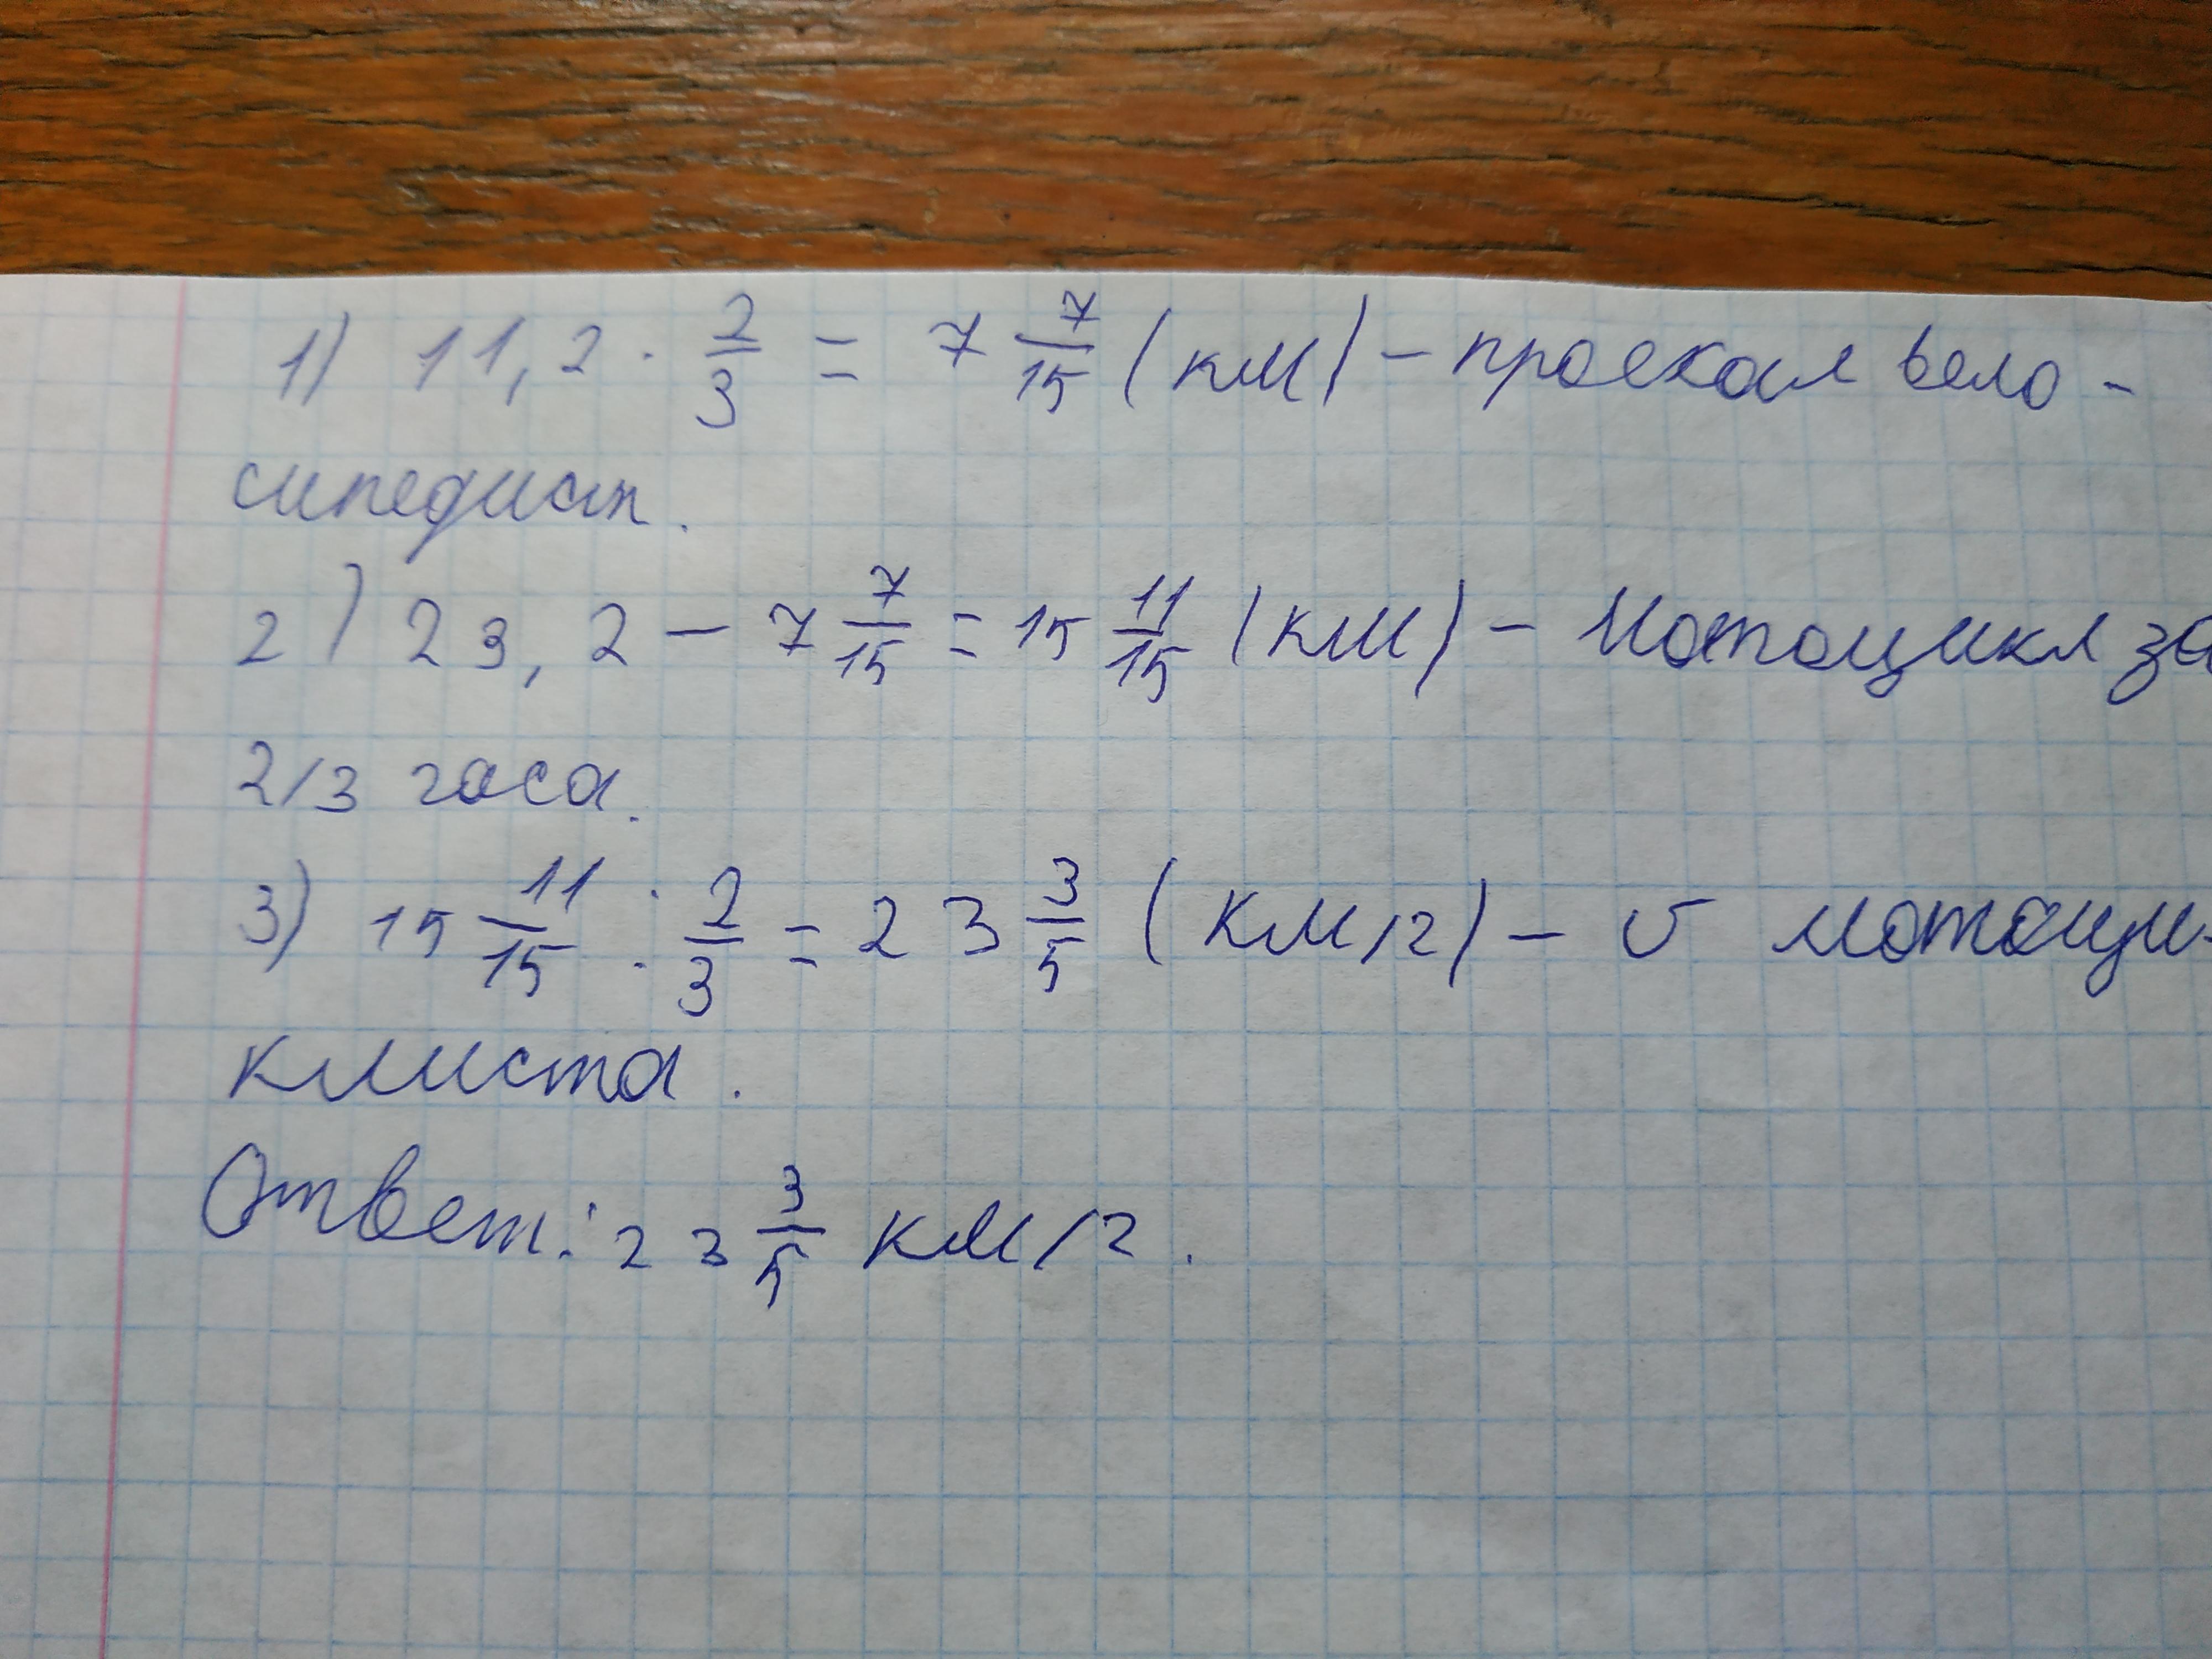 1) 11,2 · 2/3 = 7 7/15 (км) – проехал вело-
сипедист.
2) 23,2 – 7 7/15 = 15 11/15 (км) – мотоцикл за
2/3 часа.
3) 15 11/15 : 2/3 = 23 3/5 (км/ч) – υ мотоци-
клиста.
Ответ: 23 3/5 км/ч.